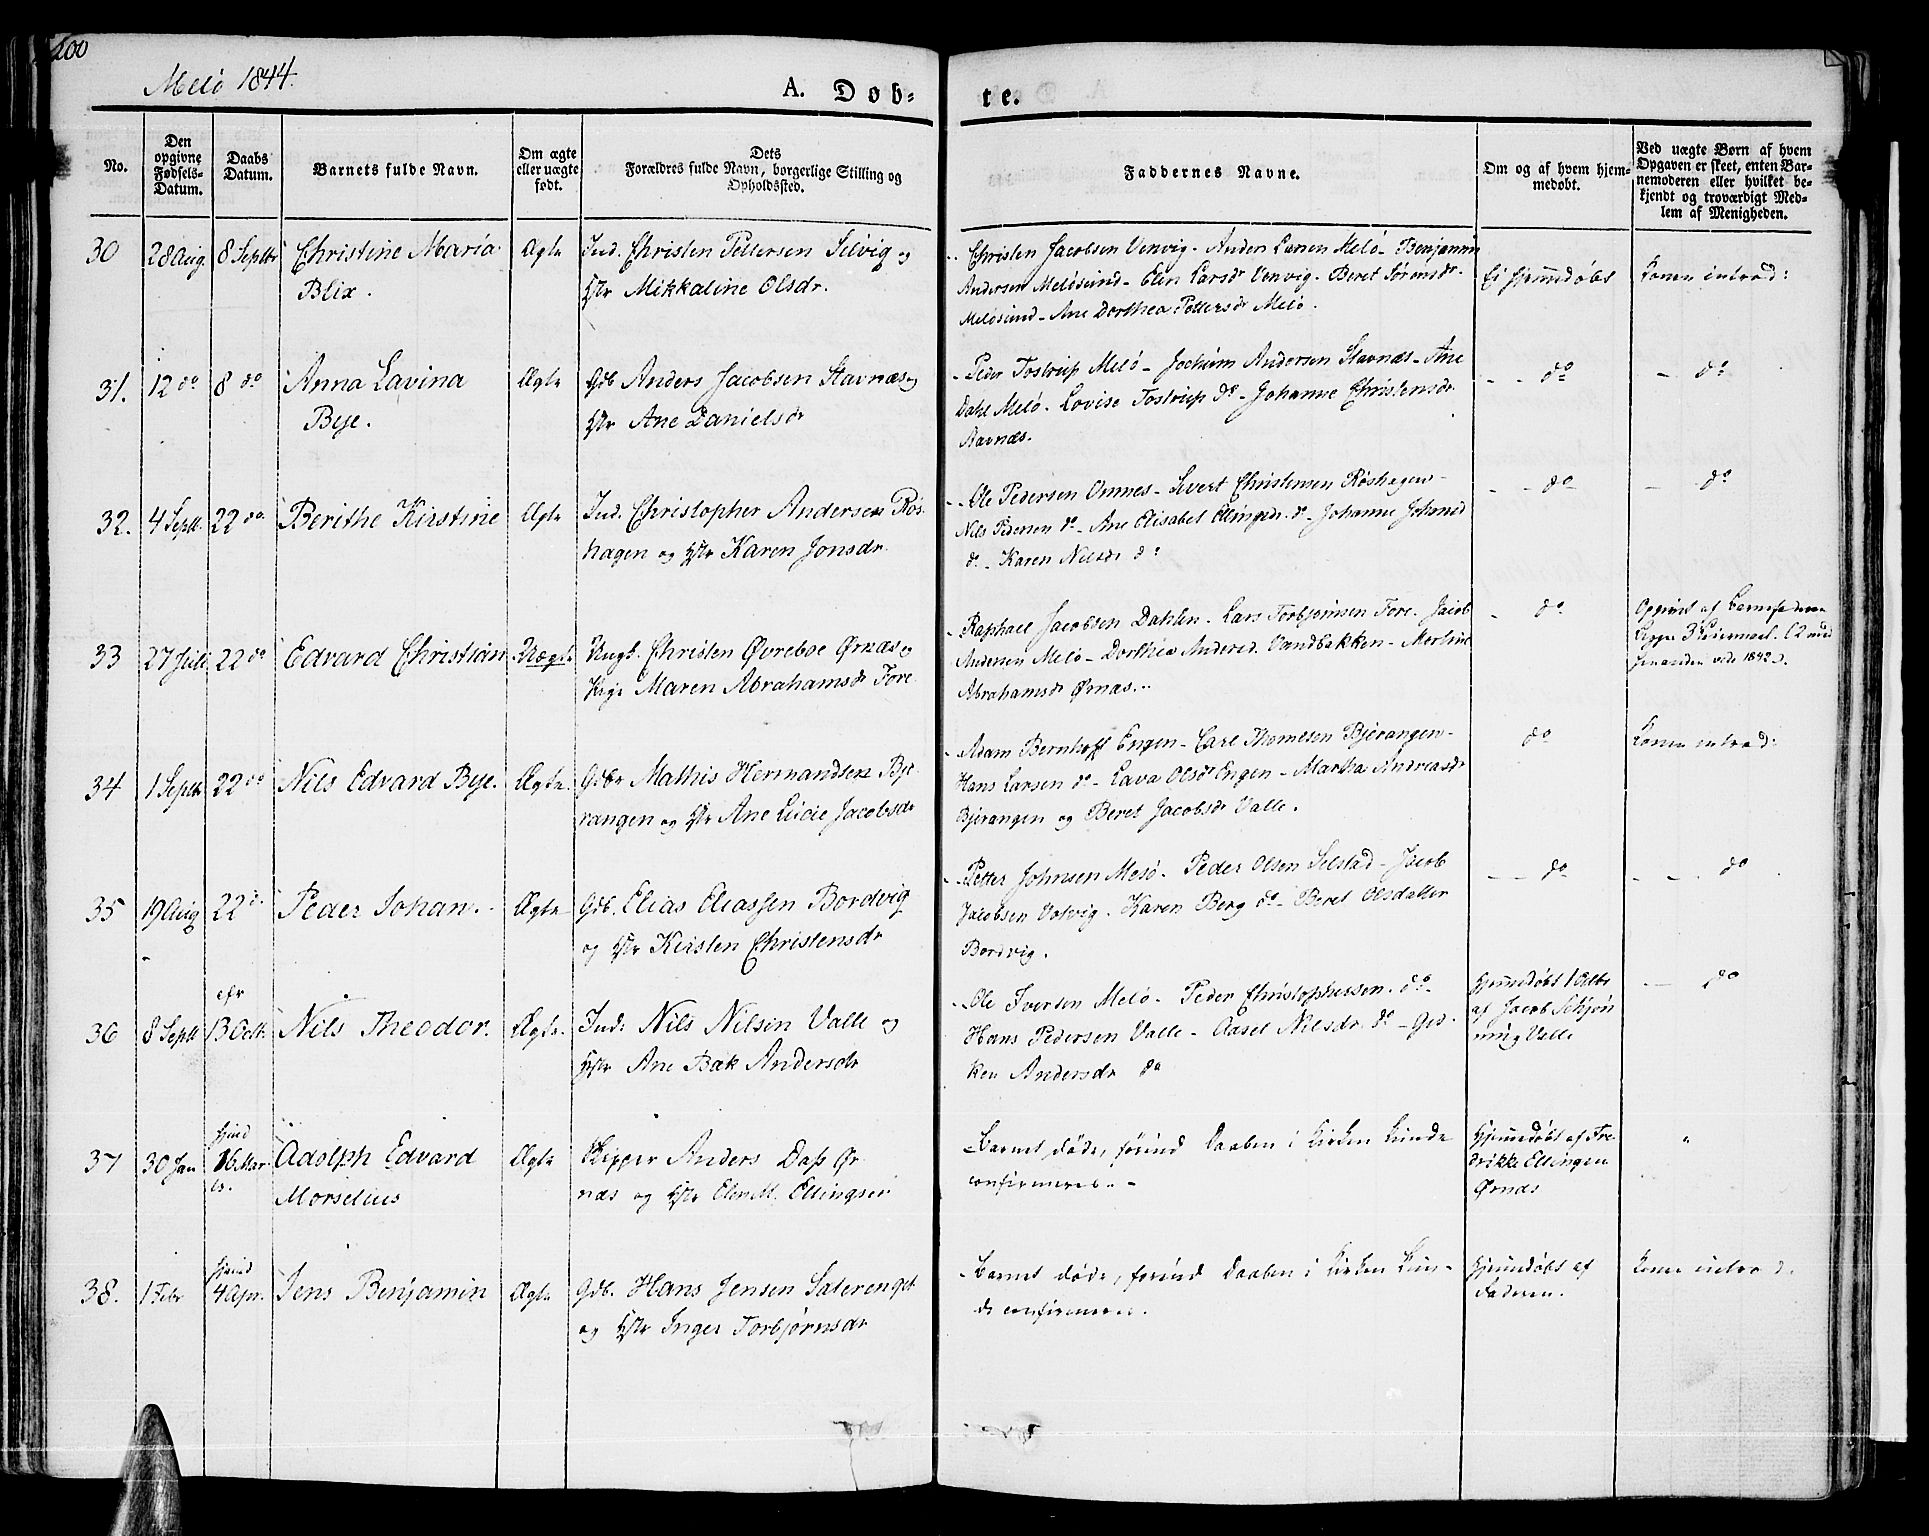 200
Melö 1844.
A. Døb-
te.
No.
Den opgivne Fødsels-Datum.
Daabs Datum.
Barnets fulde Navn.
Om ægte eller uægte født.
Dets Forældres fulde Navn, borgerlige Stilling og Opholdssted.
Faddernes Navne.
Om og af hvem hjem-medøbt.
Ved uægte Børn af hvem Opgaven er skeet, enten Bar-nemoderen eller hvilket be-kjendt og troværdigt Med-lem af Menigheden.
30 28 Aug. 8 Septbr Christine Maria Ægte Ind. Christen Pettersen Selvig og
Blix. Hstr Mikkaline Olsdr.
Christen Jacobsen Venvig - Anders Larsen Melö - Benjamin
Andersen Melösund - Elen Larsdr Venvig - Beret Sörensdr
Melösund - Ane Dorthea Pettersdr Melö.
Ei hjemmedøbt
Konen introd:
31. 12 do 8 do Anna Lavina Ægte Gdb Anders Jacobsen Stavnæs og
Bye. Hstr Ane Danielsdr
Peder Tostrup Melö - Jochum Andersen Stavnæs - Ane
Dahl Melö - Lovise Tostrup do - Johanne Christensdr
Stavnæs.
- - do
- do
32. 4 Septb. 22 do Berithe Kirstine Ægte Ind. Christopher Andersen Rös-
hagen og Hstr Karen Jonsdr.
Ole Pedersen Omnes - Sivert Christensen Röshagen -
Nils Pedersen do - Ane Elisabet Ellingsdr. do - Johanne Johansdr
do - Karen Nilsdr do
- - do -
- do
33 27 Juli 22 do Edvard Christian Uægte Ungk. Christen Øvreboe Ørnæs og
Pige Maren Abrahamsdr Fore
Raphael Jacobsen Dahlen - Lars Torbjörnsen Fore - Jacob
Andersen Melö - Dorthea Andersd. Vandbakken - Mortine
Abrahamsdr Ørnæs.
- do
Opgivet af Barnefaderen
34 1 Septbr 22 do Nils Edvard Bye. Ægte. Gdbr Mathis Hermandsen Bje-
rangen og Hstr Ane Lucie Jacobsdr
Adam Bernhoft Engen - Carl Thomesen Bjerangen -
Hans Larsen do - Lava Olsdr Engen - Martha Andreasdr
Bjerangen og Beret Jacobsdr Valle.
do
Konen introd:
35 19 Aug 22 d. Peder Johan. Ægte Gdb. Elias Eliassen Bordvig
og Hstr Kirsten Christensdr
Petter Johnsen Mesö - Peder Olsen Selstad - Jacob
Jacobsen Votvig - Karen Berg do - Beret Olsdatter
Bordvig.
- - do
- - - do
36 8 Septb 13 Octb. Nils Theodor. Ægte. Ind. Nils Nilsen Valle og
Hstr Ane Bak Andersdr
Ole Iversen Melö - Peder Christophersen. do -
Hans Pedersen Valle - Aasel Nilsdr. do - Ged-
ken Andersdr do
Hjemmedøbt
af Jacob Schjön
ning Valle
- - do
37 30 Jan 16 Mar Adolph Edvard Ægte Skipper Anders Dass Ør-
Morselius næs og Hstr Elen M. Ellingsen
Barnet døde, förend Daaben i Kirken kunde
confirmeres. -
Hjemmedøbt af Fre-
drikke Ellingsen
Ørnæs
"
38. 1 Febr 4 Apr. Jens Benjamin Ægte Gdb. Hans Jensen Saterenget
og Hstr Inger Torbjørnsdr
Barnet døde, forend Daaben i Kirken kun-
de confirmeres.
Hjemmedøbt af
Faderen.
Konen introd.